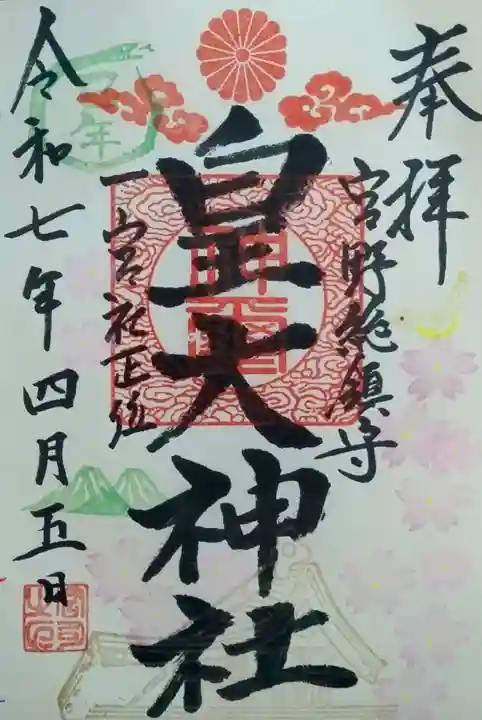 奉拝
宮野総鎮守
皇大神社
一宮社正位
令和七年四月五日